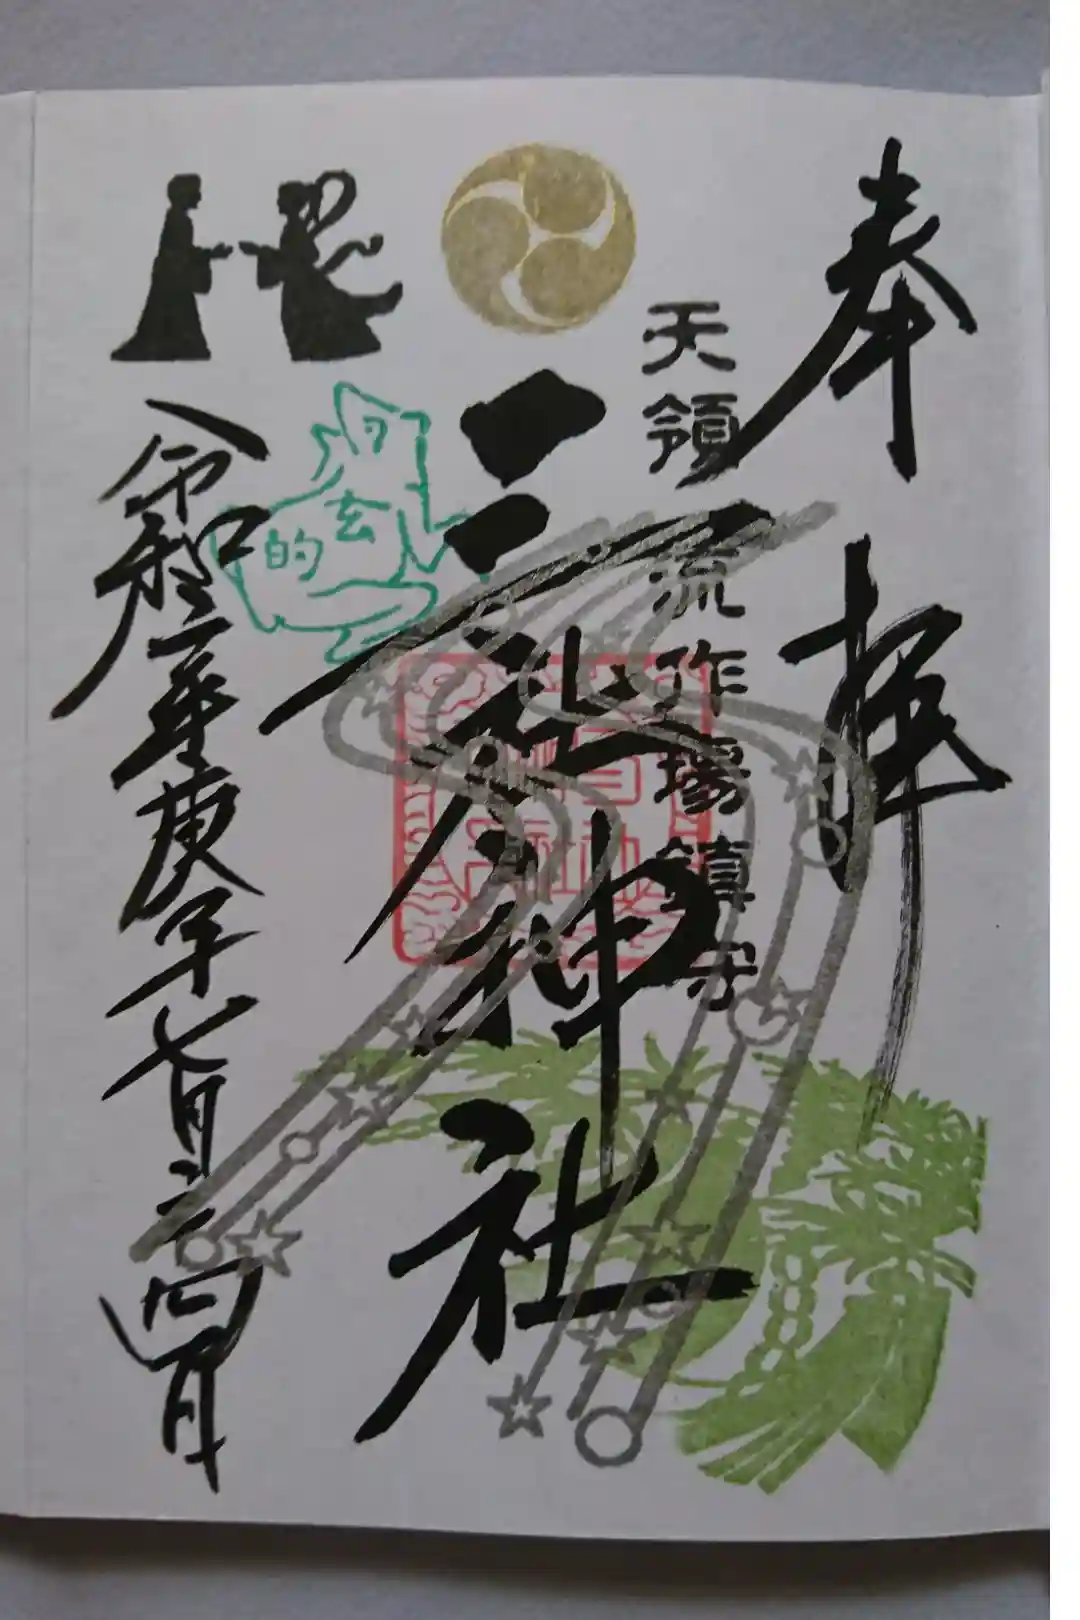 奉拝
天領 流作場鎮守
三社神社
玄的
令和二年庚子七月